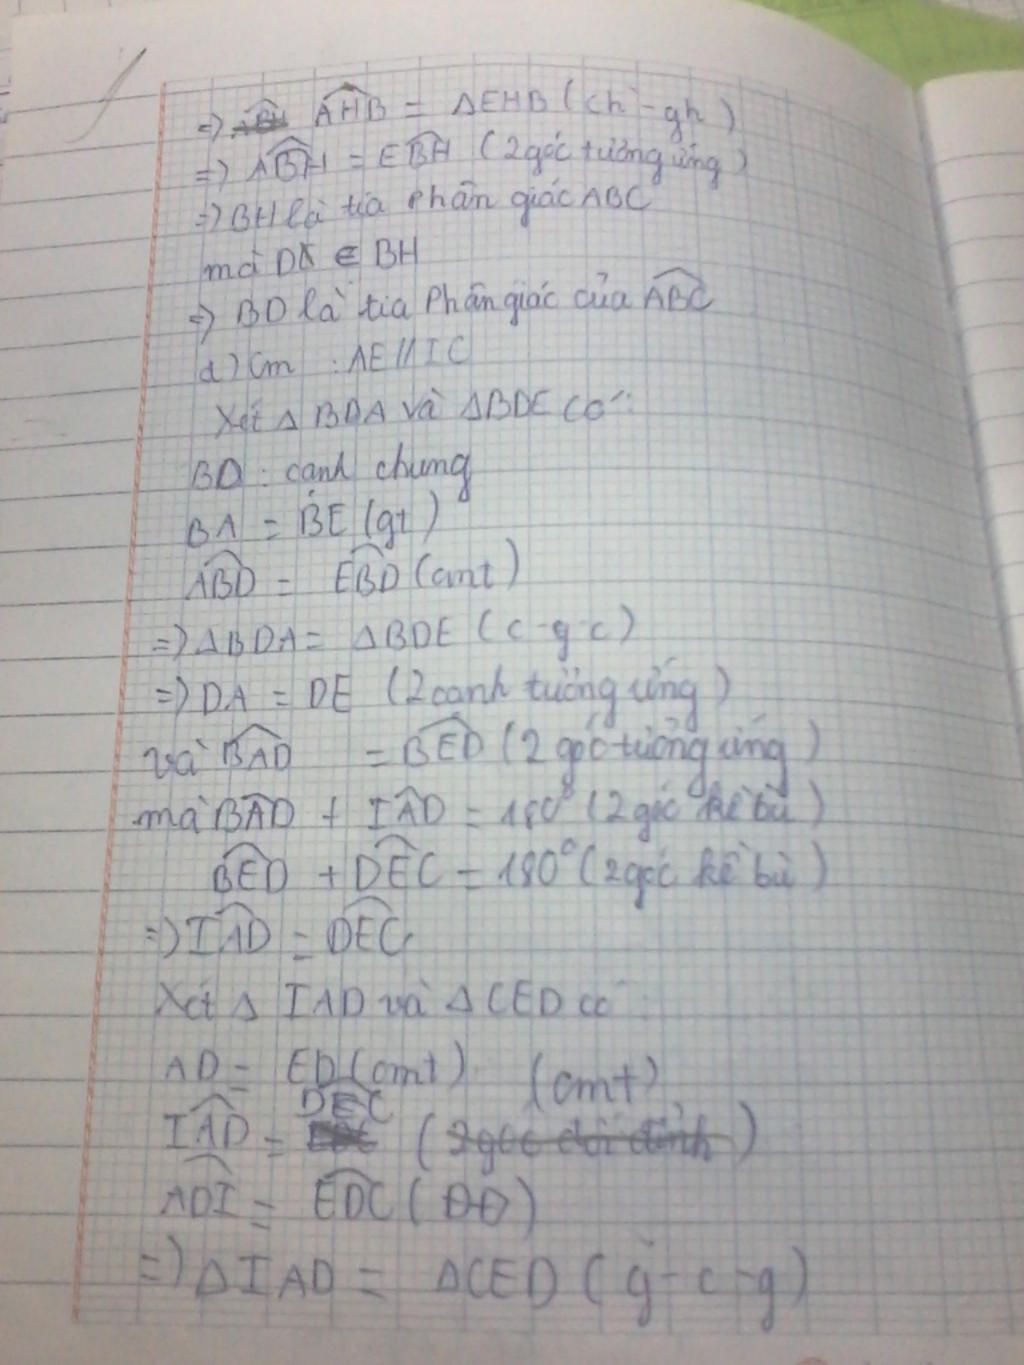 => AHB = ΔEHB (ch - gh)
=> ABH = EBH (2 góc tương ứng)
=> BH là tia phân giác ABC
mà D ∈ BH
=> BD là tia Phân giác của ABC
d) Cm : AE // IC
Xét Δ BDA và ΔBDE có :
BD : canh chung
BA = BE (gt)
ABD = EBD (cmt)
=> ΔBDA = ΔBDE (c-g-c)
=> DA = DE (2 canh tương ứng)
và BAD = BED (2 góc tương ứng)
mà BAD + IAD = 180° (2 góc kề bù)
BED + DEC = 180° (2 góc kề bù)
=> IAD = DEC
Xét Δ IAD và ΔCED có :
AD = ED (cmt)
IAD = DEC (2 góc đối đỉnh) (cmt)
ADI = EDC (ĐĐ)
=> ΔIAD = ΔCED (g-c-g)